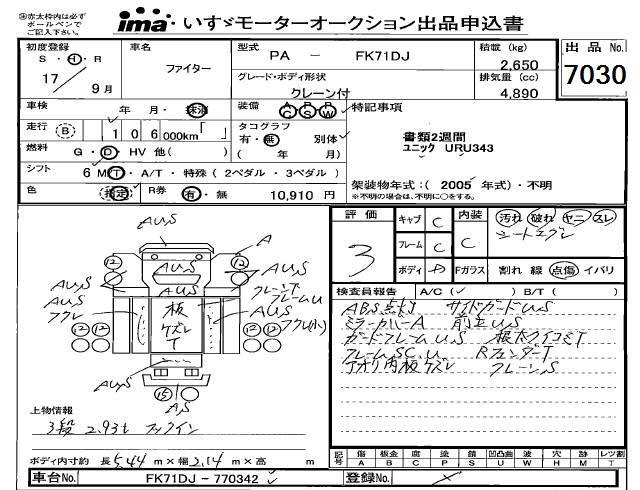 ※赤太枠内は必ず
ボールペンで
ご記入下さい。
ima いすゞモーターオークション出品申込書
初度登録
S・H・R
17 9月
車名
ファイター
型式
PA － FK71DJ
積載 (kg)
2,650
出品No.
7030
グレード・ボディ形状
クレーン付
排気量 (cc)
4,890
車検
年 月・抹消
装備
AC PS PW
特記事項
走行 (B) 1 0 6 000km「 」
タコグラフ
有・無 別体
( 年 月)
書類2週間
ユニック URU343
燃料
G・D・HV 他( )
シフト
6 MT・A/T・特殊 (2ペダル・3ペダル)
架装物年式：( 2005 年式)・不明
※不明の場合は、不明に○をする。
色
指定
R券
有・無 10,910 円
評価
3
キャブ C
フレーム C
ボディ D
内装
C
Fガラス
汚れ 破れ ヤニ スレ
シートエグレ
割れ 線 点傷 イバリ
検査員報告 A/C( ✓ ) B/T( )
ABS点灯 サイドガードU.S
ミラーカバーA 前立U,S
ガードフレームU,S 根太クイコミT
フレームSC.U RフェンダーT
アオリ内板ケズレ クレーンS
AU,S
A
12
12
AU,S
AU,S
AU,S
フクレ
クレーンT
フレームU
AUS
AU,S
板
ケズレ
T
12
12
12
12
AU,S
AU,S
15
A,S
上物情報
3段 2.93t フックイン
ボディ内寸約 長 5.44 m×幅 2.14 m×高 m
記号
傷 板金 腐 塗 凹凸曲 波 穴 跡 レツ割
A B C P S U W H M T
車台No. FK71DJ－770342
登録No.